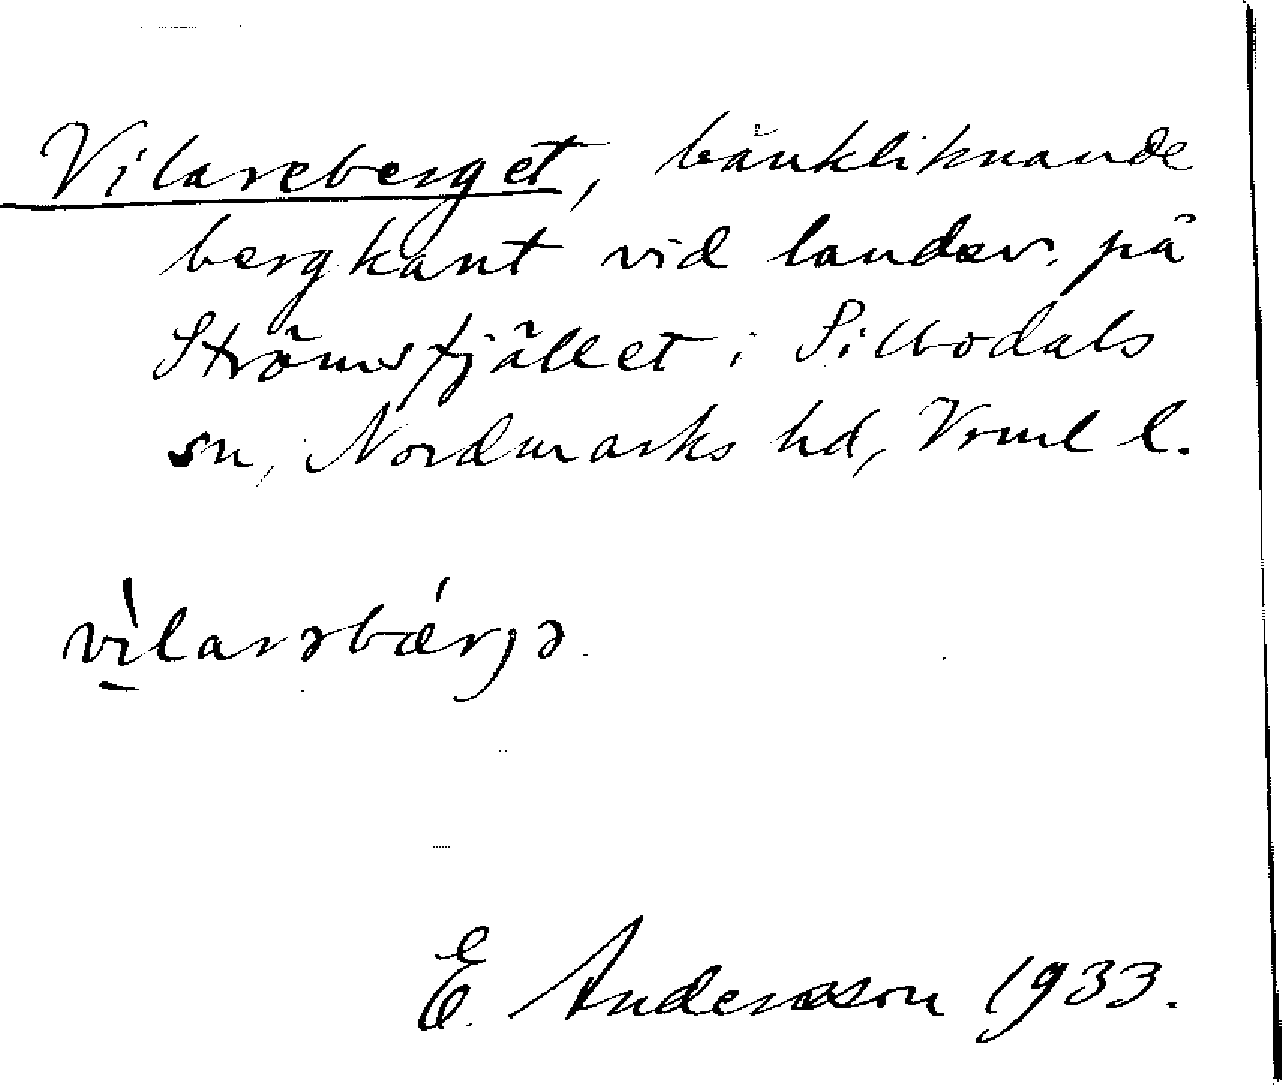 Vilareberget, bänkliknande
bergkant vid landsv. på
Strömsfjället i Silbodals
sn, Nordmarks hd, Vrml l.
vìlarəbǽrjə.
E. Andersson 1933.